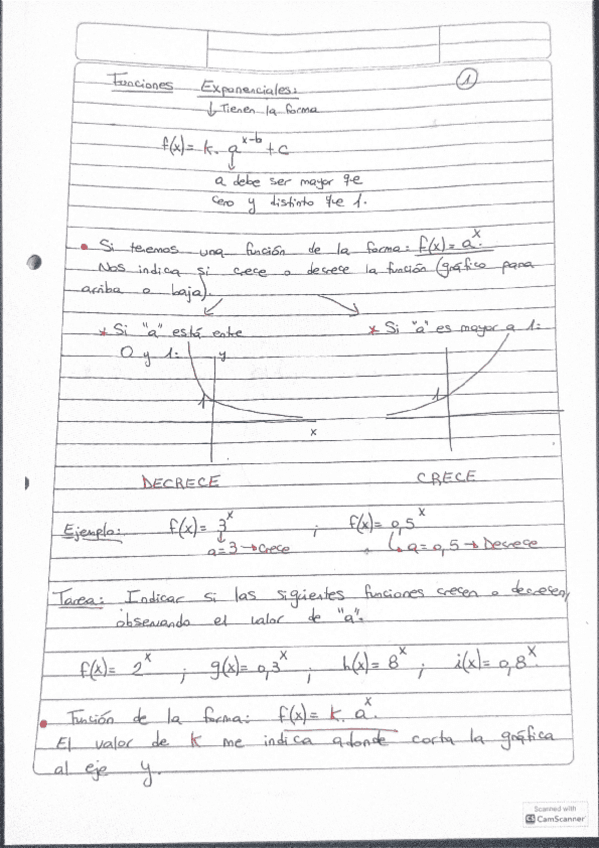 Funciones Exponenciales: 1
↓ Tienen la forma
f(x) = k. a^(x-b) + c
a debe ser mayor qe
cero y distinto qe 1.
• Si tenemos una función de la forma: f(x) = a^x.
Nos indica si crece o decrece la función (gráfico para
arriba o baja).
* Si "a" está entre * Si "a" es mayor a 1:
0 y 1: y
1 1
x
DECRECE CRECE
Ejemplo: f(x) = 3^x ; f(x) = 0,5^x
a = 3 → crece a = 0,5 → Decrece
Tarea: Indicar si las siguientes funciones crecen o decrecen,
observando el valor de "a".
f(x) = 2^x ; g(x) = 0,3^x ; h(x) = 8^x ; i(x) = 0,8^x.
• Función de la forma: f(x) = k. a^x.
El valor de k me indica adonde corta la gráfica
al eje y.
Scanned with
CS CamScanner